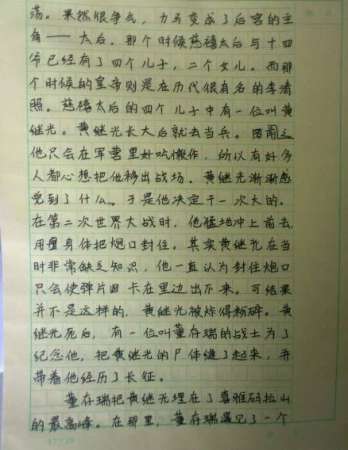 荡。果然很争气，力马变成了后宫的主
角——太后。那个时候慈禧太后与十四
爷已经有了四个儿子，二个女儿。而那
个时候的皇帝则是在历代很有名的李清
照。慈禧太后的四个儿子中有一位叫黄
继光。黄继光长大后就去当兵。因
他只会在军营里好吃懒作，所以有好多
人都心想把他移出战场。黄继光渐渐感
觉到了什么。于是他决定干一次大的。
在第二次世界大战时，他猛地冲上前去
用盈身体把炮口封住。其实黄继光在当
时非常缺乏知识，他一直认为封住炮口
只会使弹片回卡在里边出不来。可结果
并不是这样的，黄继光被炸得粉碎。黄
继光死后，有一位叫董存瑞的战士为了
纪念他，把黄继光的尸体缝了起来，并
带着他经历了长征。
董存瑞把黄继光埋在了喜雅码拉山
的最高峰。在那里，董存瑞遇见了一个